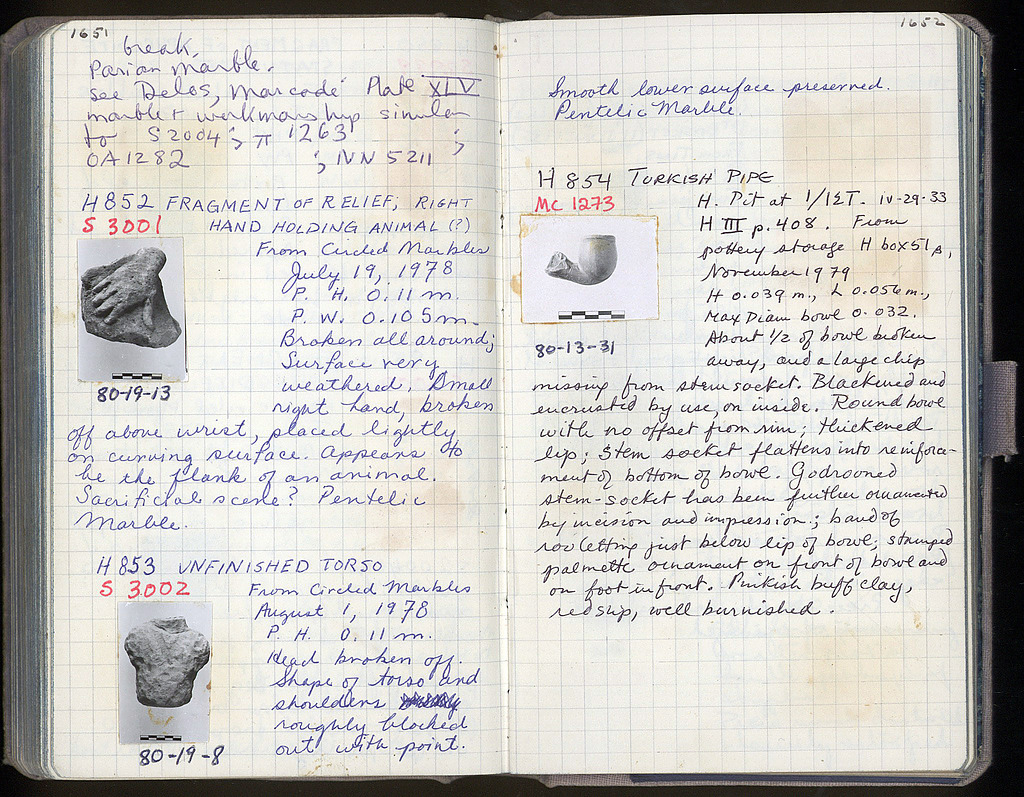 1651
break.
Parian marble.
see Delos, Marcadé Plate XLV
marble + workmanship similar
to S 2004; π 1263;
OA 1282; NN 5211
H 852 FRAGMENT OF RELIEF; RIGHT
S 3001 HAND HOLDING ANIMAL (?)
From Circled Marbles
July 19, 1978
P. H. 0.11 m.
P. W. 0.105 m.
Broken all around;
Surface very
weathered. Small
right hand, broken
80-19-13
off above wrist, placed lightly
on curving surface. Appears to
be the flank of an animal.
Sacrificial scene? Pentelic
Marble.
H 853 UNFINISHED TORSO
S 3002 From Circled Marbles
August 1, 1978
P. H. 0.11 m.
Head broken off.
Shape of torso and
shoulders
roughly blocked
out with point.
80-19-8
1652
Smooth lower surface preserved.
Pentelic Marble.
H 854 TURKISH PIPE
MC 1273 H. Pit at 1/ΙΣΤ. IV-29-33
H III p. 408. From
pottery storage H box 51,
November 1979
H 0.039 m., L 0.056 m.,
Max Diam bowl 0.032.
About 1/2 of bowl broken
away, and a large chip
80-13-31
missing from stem socket. Blackened and
encrusted by use, on inside. Round bowl
with no offset from rim; thickened
lip; stem socket flattens into reinforce-
ment of bottom of bowl. Godrooned
stem-socket has been further ornamented
by incision and impression; band of
rouletting just below lip of bowl; stamped
palmette ornament on front of bowl and
on foot in front. Pinkish buff clay,
red slip, well burnished.